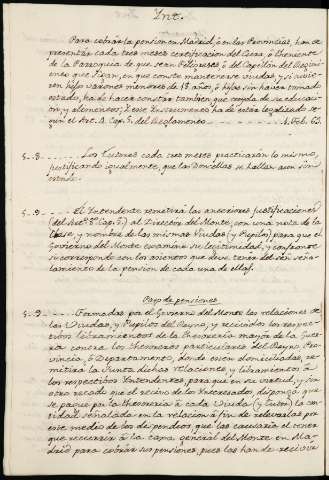 Int.
Para cobrar la pension en Madrid, ó en las Provincias, han de
presentar cada tres meses certificacion del Cura, ó theniente
de la Parroquia de que sean Feligreses, ó del Capellan del Regim
iento que sigan, en que conste mantenerse viudas, y si tuvie
ren hijos varones menores de 18 años, ó hijas sin haver tomado
estado, ha de hacer constar tambien que cuyda de su educaci
on, y alimentos; y este Instrumento ha de estar legalizado se
gun el Art. 2. Cap. 5. del Reglamento 4. Feb. 63.
5..8. Los Tutores cada tres meses practicarán lo mismo,
justificando igualmente, que las Doncellas se hallan aun sin
estado.
5..9. El Intendente remitirá las anteriores justificaciones
(del Art. 3º Cap. 5.) al Director del Monte, con una nota de la
Clase, y nombre de las mismas Viudas (y Pupilos) para que el
Govierno del Monte examine su legitimidad, y confronte
su correspondo con los asientos que deve tener del señ
lamiento de la pension de cada una de ellas.
Pago de pensiones
5..9. Formadas por el Govierno del Monte las relaciones de
las Viudas, y Pupilos del Reyno, y recividos los respec
tivos libramientos de la thesoreria mayor de la Guer
ra contra los thesoreros particulares del Reyno, Pro
vincia, ó Departamento, donde esten domiciliadas, re
mitirá la Junta dichas relaciones, y libramientos á
los respectivos Intendentes, para que en su virtud, y sin
otro recado que el recivo de los Interesados, disponga que
se pague por la thesoreria á cada Viuda (y tutor) la can
tidad señalada en la relacion á fin de relevarlas por
este medio de los dispendios que las causaria el tener
que recurrir á la caxa general del Monte en Ma
drid para cobrar sus pensiones, pues las han de recivir